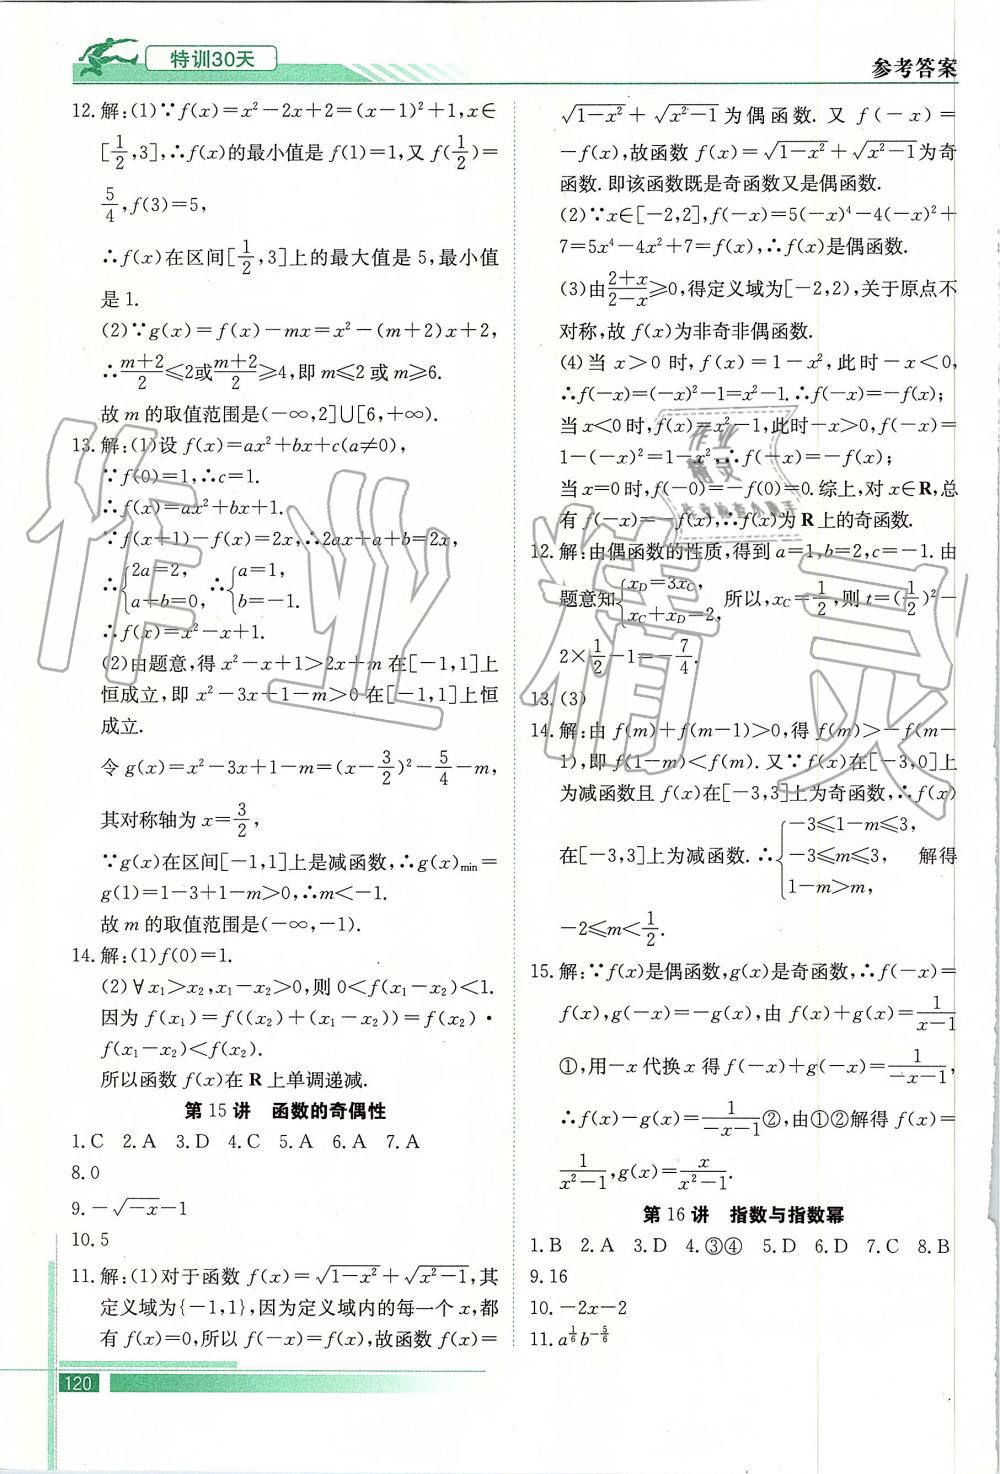 特训30天
参考答案
12.解:(1)∵f(x)=x²-2x+2=(x-1)²+1,x∈
[1/2,3],∴f(x)的最小值是f(1)=1,又f(1/2)=
5/4,f(3)=5,
∴f(x)在区间[1/2,3]上的最大值是5,最小值
是1.
(2)∵g(x)=f(x)-mx=x²-(m+2)x+2,
∴(m+2)/2≤2或(m+2)/2≥4,即m≤2或m≥6.
故m的取值范围是(-∞,2]∪[6,+∞).
13.解:(1)设f(x)=ax²+bx+c(a≠0),
∵f(0)=1,∴c=1.
∴f(x)=ax²+bx+1.
∵f(x+1)-f(x)=2x,∴2ax+a+b=2x,
∴{2a=2, a+b=0, ∴{a=1, b=-1.
∴f(x)=x²-x+1.
(2)由题意,得x²-x+1>2x+m在[-1,1]上
恒成立,即x²-3x+1-m>0在[-1,1]上恒
成立.
令g(x)=x²-3x+1-m=(x-3/2)²-5/4-m,
其对称轴为x=3/2,
∵g(x)在区间[-1,1]上是减函数,∴g(x)min=
g(1)=1-3+1-m>0,∴m<-1.
故m的取值范围是(-∞,-1).
14.解:(1)f(0)=1.
(2)∀x₁>x₂,x₁-x₂>0,则0<f(x₁-x₂)<1.
因为f(x₁)=f((x₂)+(x₁-x₂))=f(x₂)·
f(x₁-x₂)<f(x₂).
所以函数f(x)在R上单调递减.
第15讲 函数的奇偶性
1.C 2.A 3.D 4.C 5.A 6.A 7.A
8.0
9.-√(-x)-1
10.5
11.解:(1)对于函数f(x)=√(1-x²)+√(x²-1),其
定义域为{-1,1},因为定义域内的每一个x,都
有f(x)=0,所以f(-x)=f(x),故函数f(x)=
120
√(1-x²)+√(x²-1)为偶函数.又f(-x)=
-f(x),故函数f(x)=√(1-x²)+√(x²-1)为奇
函数.即该函数既是奇函数又是偶函数.
(2)∵x∈[-2,2],f(-x)=5(-x)⁴-4(-x)²+
7=5x⁴-4x²+7=f(x),∴f(x)是偶函数.
(3)由(2+x)/(2-x)≥0,得定义域为[-2,2),关于原点不
对称,故f(x)为非奇非偶函数.
(4)当x>0时,f(x)=1-x²,此时-x<0,
∴f(-x)=(-x)²-1=x²-1.∴f(-x)=-f(x);
当x<0时,f(x)=x²-1,此时-x>0,f(-x)=
1-(-x)²=1-x²,∴f(-x)=-f(x);
当x=0时,f(-0)=-f(0)=0.综上,对x∈R,总
有f(-x)=-f(x),∴f(x)为R上的奇函数.
12.解:由偶函数的性质,得到a=1,b=2,c=-1.由
题意知{xD=3xC, xC+xD=2, 所以,xC=1/2,则t=(1/2)²-
2×1/2-1=-7/4.
13.(3)
14.解:由f(m)+f(m-1)>0,得f(m)>-f(m-
1),即f(1-m)<f(m).又∵f(x)在[-3,0]上
为减函数且f(x)在[-3,3]上为奇函数,∴f(x)
在[-3,3]上为减函数.∴{-3≤1-m≤3, -3≤m≤3, 1-m>m, 解得
-2≤m<1/2.
15.解:∵f(x)是偶函数,g(x)是奇函数,∴f(-x)=
f(x),g(-x)=-g(x),由f(x)+g(x)=1/(x-1)
①,用-x代换x得f(-x)+g(-x)=1/(-x-1),
∴f(x)-g(x)=1/(-x-1)②,由①②解得f(x)=
1/(x²-1),g(x)=x/(x²-1).
第16讲 指数与指数幂
1.B 2.A 3.D 4.③④ 5.D 6.D 7.C 8.B
9.16
10.-2x-2
11.a^(1/6)b^(-5/6)
作业精灵
作业
精灵